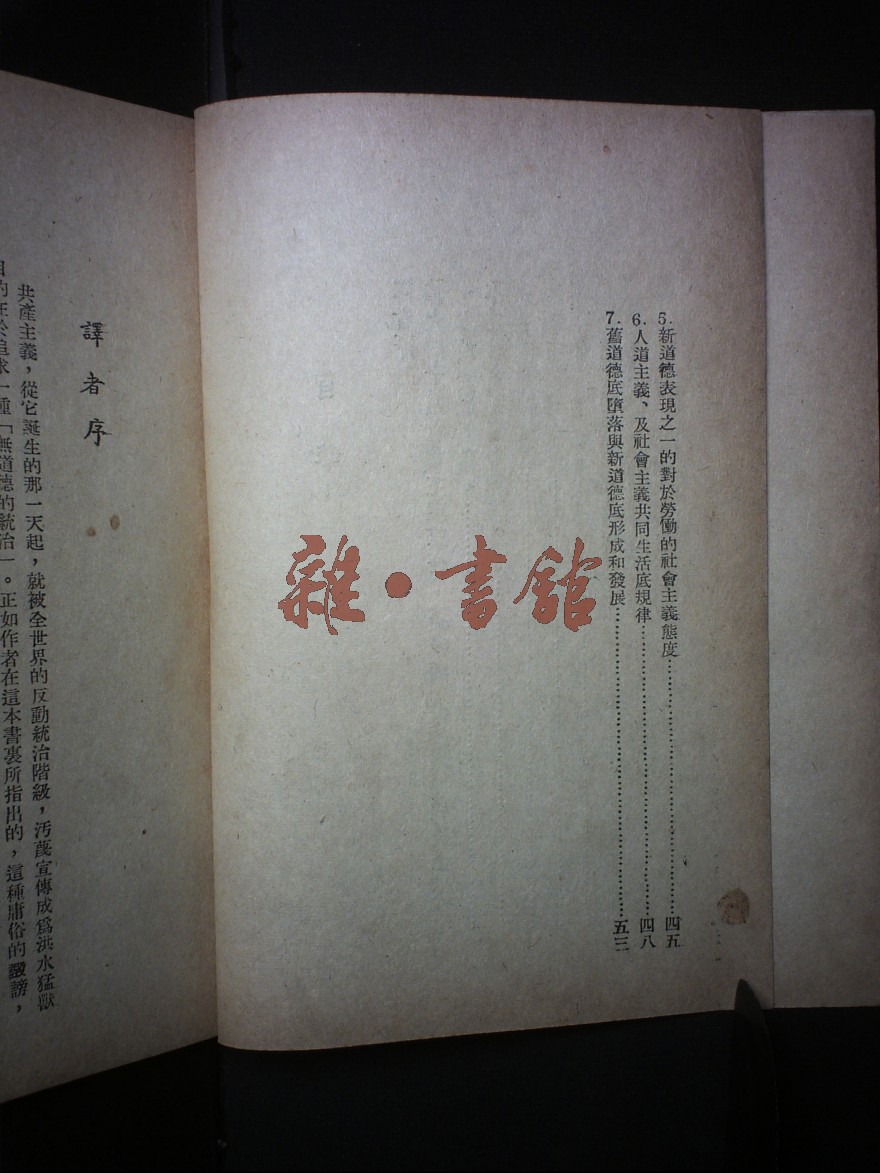 5.新道德表現之一的對於勞働的社會主義態度……四五
6.人道主義、及社會主義共同生活底規律……四八
7.舊道德底墮落與新道德底形成和發展……五三
雜·書館
譯者序
共產主義，從它誕生的那一天起，就被全世界的反動統治階級，汚衊宣傳成爲洪水猛獸
目的在於追求一種「無道德的統治」。正如作者在這本書裏所指出的，這種庸俗的譭謗，